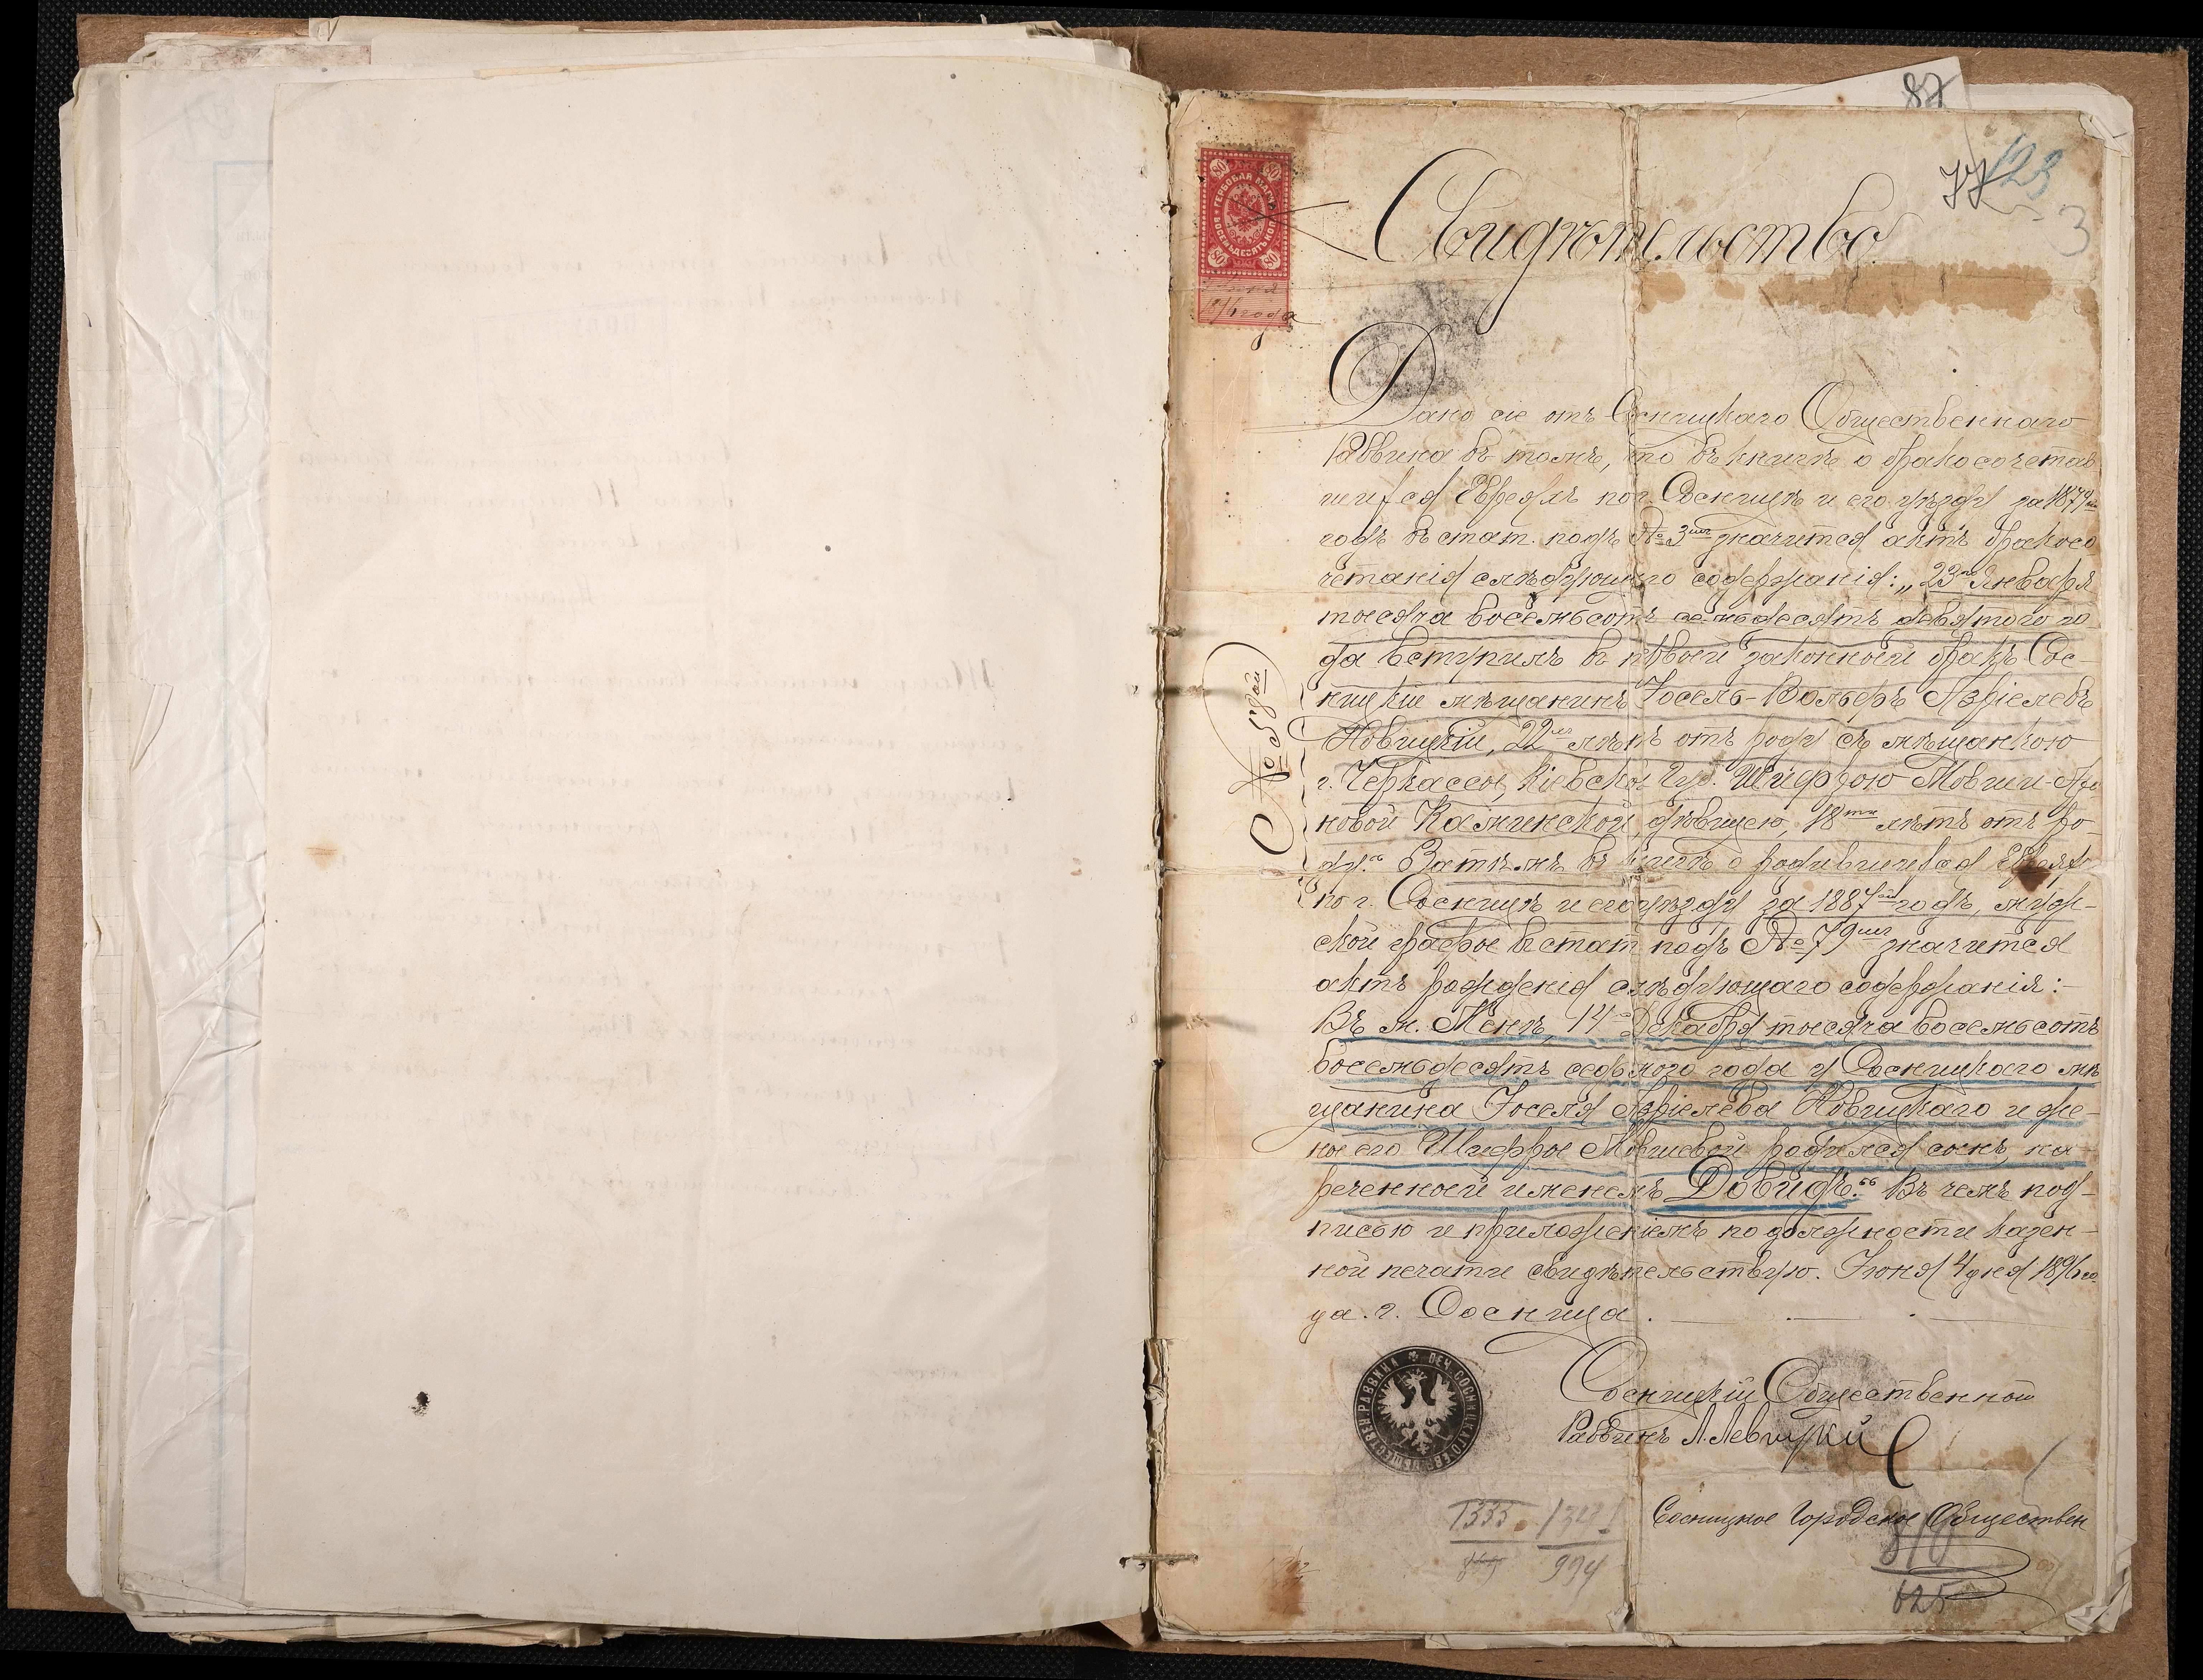 87
77
123
3
80 80
ГЕРБОВАЯ МАРКА
ВОСЕМЬДЕСЯТЪ КОП.
80 80
года
Свидѣтельство.
Дано сіе отъ Сосницкаго Общественнаго
Раввина въ томъ, что въ книгѣ о бракосочетав
шихся Евреяхъ по г. Сосницѣ и его уѣзду за 1879й
годъ въ стат. подъ № 3мъ значится актъ бракосо
четанія слѣдующаго содержанія: „23го Января
тысяча восемьсотъ семьдесятъ девятого го-
да вступилъ въ первый законный бракъ Сос-
ницкій мѣщанинъ Іосель-Вольфъ Азріелевъ
Новицкій, 22хъ лѣтъ отъ роду съ мѣщанкою
г. Черкассы, Кіевской Губ. Шифрою Мовши-Аро
новой Каминской, дѣвицею, 18ти лѣтъ отъ ро-
ду.“ Затѣмъ въ книгѣ о родившихся Евреяхъ
по г. Сосницѣ и его уѣзду за 1887й годъ, муж-
ской графы въ стат. подъ № 79мъ значится
актъ рожденія слѣдующаго содержанія:
Въ м. Менѣ, 14го Декабря тысяча восемьсотъ
восемьдесятъ седьмого года у Сосницкаго мѣ
щанина Іоселя Азріелева Новицкаго и же-
ны его Шифры Мовшевой родился сынъ, на-
реченный именемъ Довидъ.“ Въ чемъ под-
писью и приложеніемъ по должности казен-
ной печати свидѣтельствую. Іюня 4 дня 1896 го
да. г. Сосница.
№ 57ой
Сосницкій Общественный
Раввинъ Л. Левицкій
ПЕЧ. СОСНИЦКАГО ЕВР. ОБЩЕСТВЕН. РАВВИНА
Сосницкое Городское Обществен
1333. 1341
994
810
625